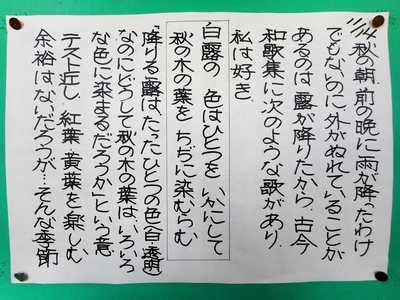 11/14 秋の朝、前の晩に雨が降ったわけ
でもないのに、外がぬれていることが
あるのは露が降りたから。古今
和歌集に次のような歌があり、
私は好き。
白露の 色はひとつを いかにして
秋の木の葉を ちぢに染むらむ
「降りる露は、たったひとつの色(透明)
なのにどうして秋の木の葉は、いろいろ
な色に染まるだろうか」という意
テスト近し 紅葉・黄葉を楽しむ
余裕はないだろうが…そんな季節